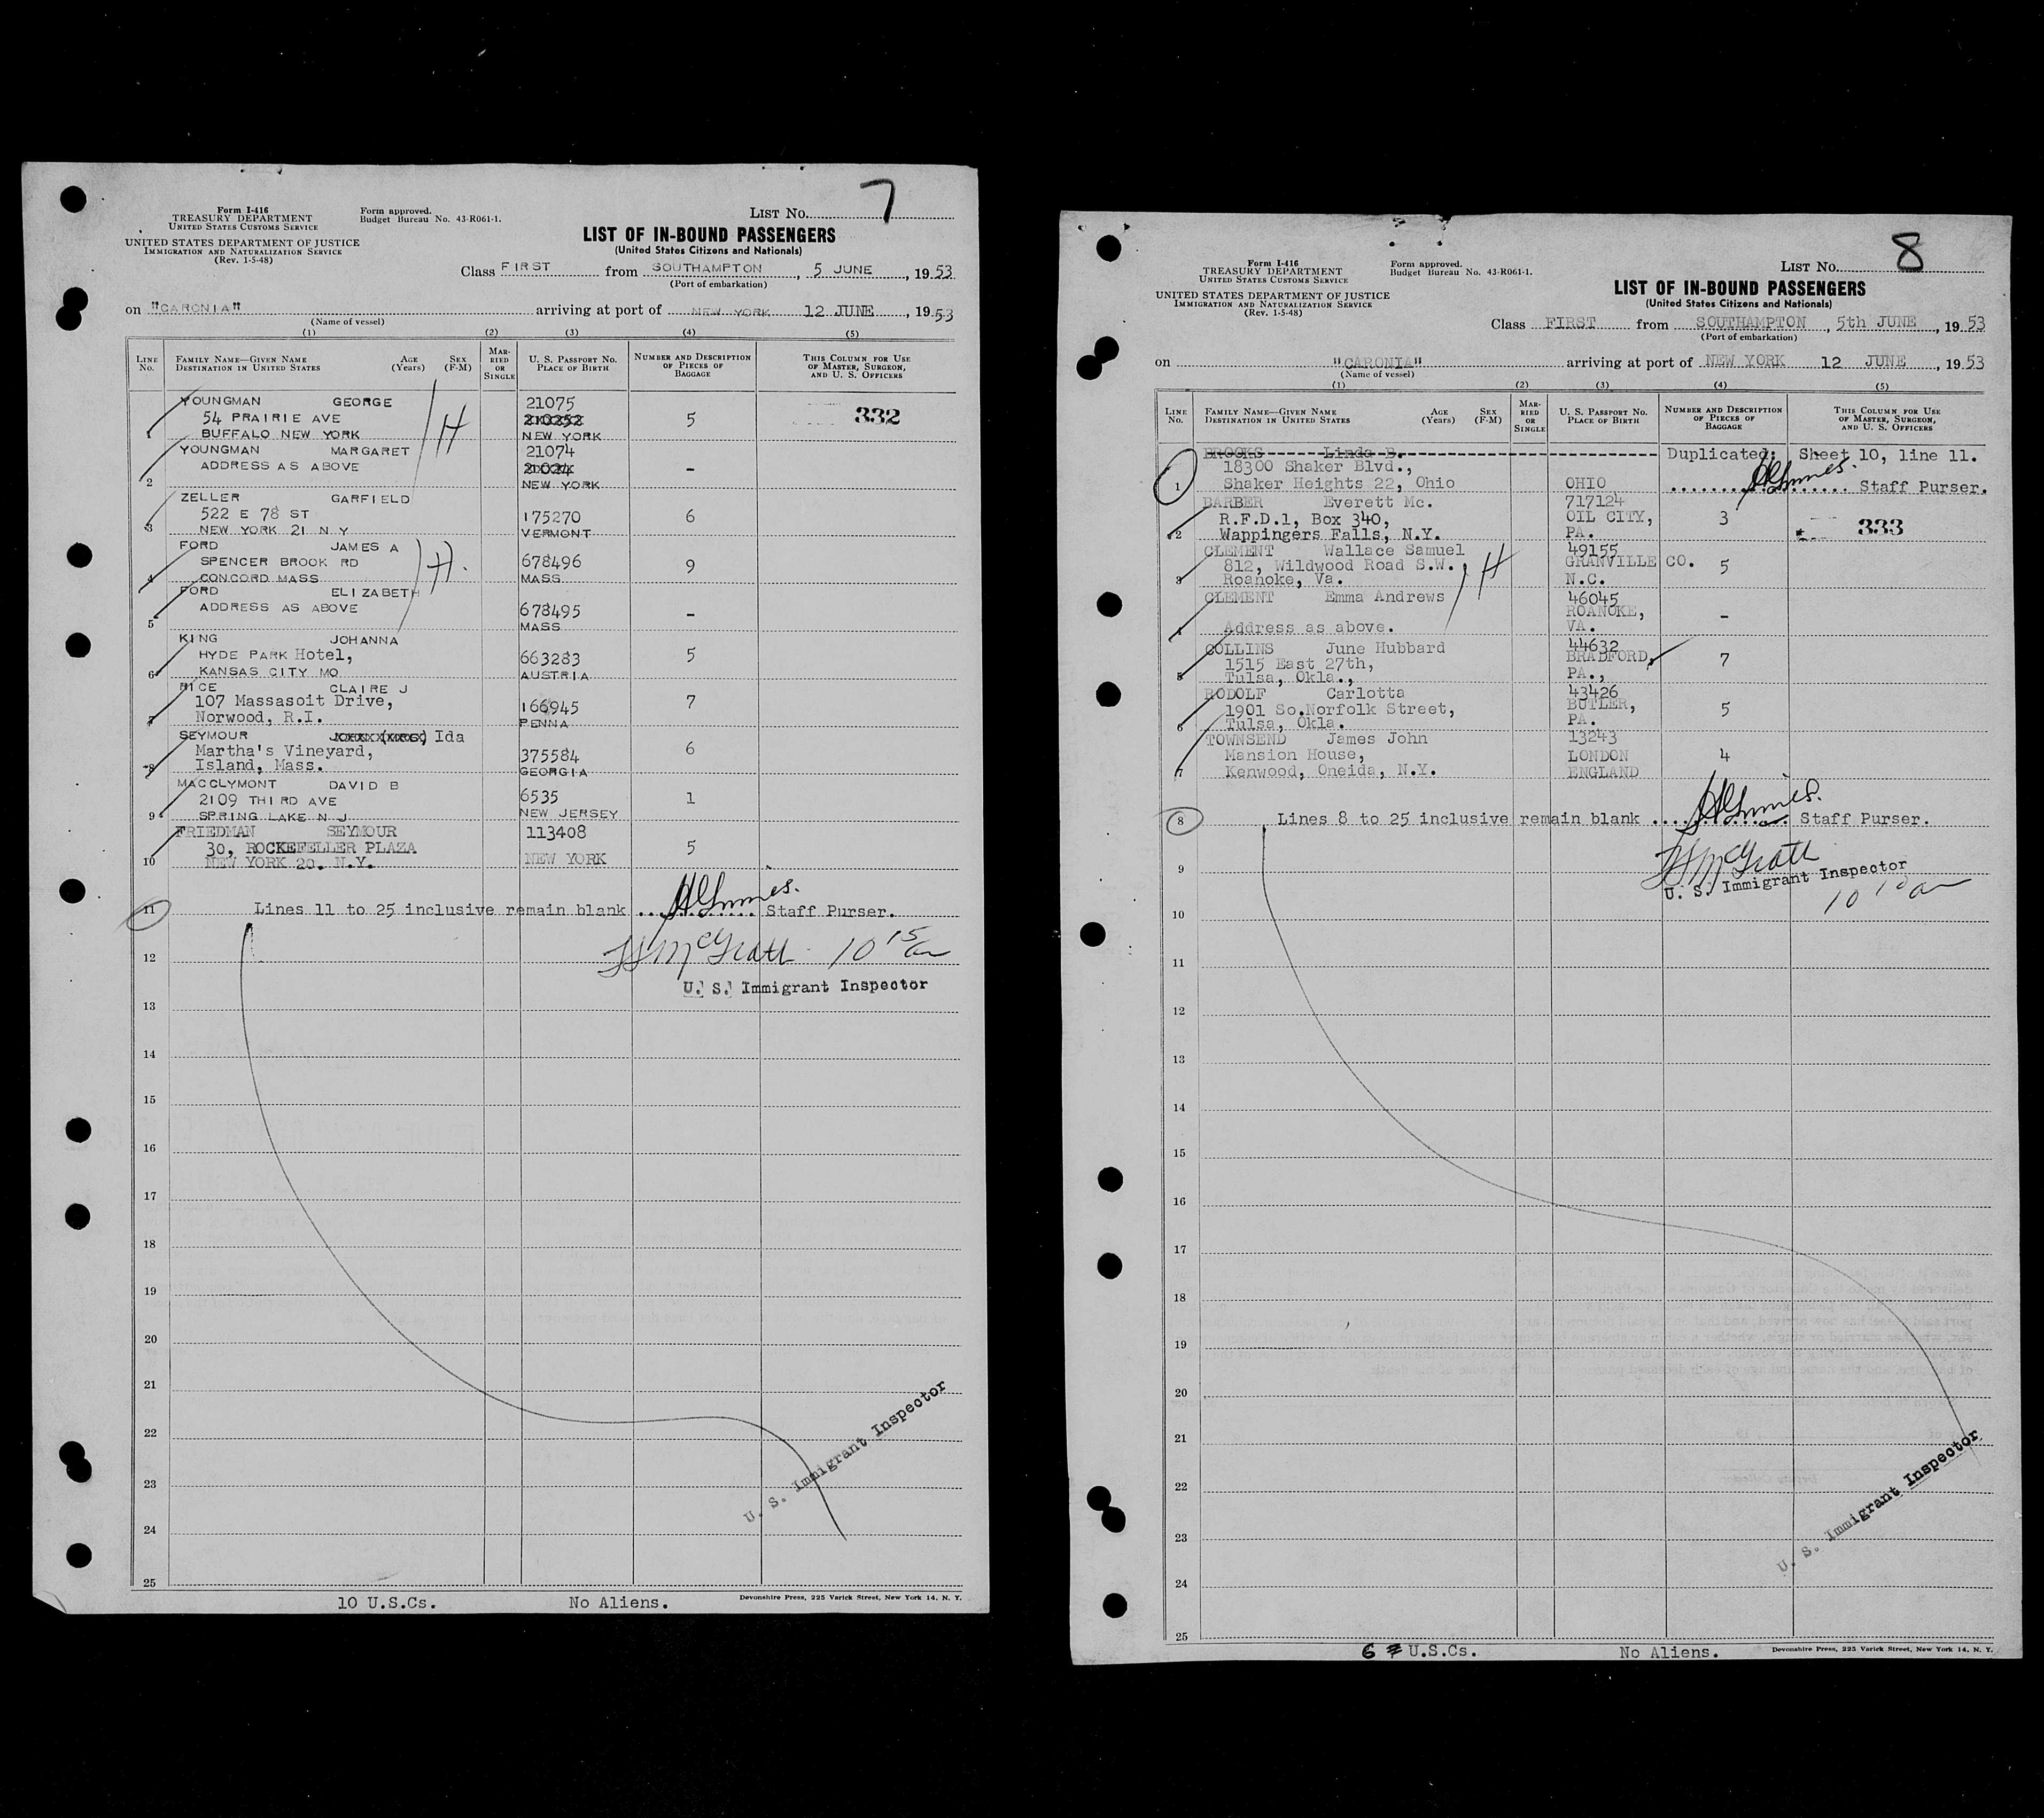 7
Form I-416
TREASURY DEPARTMENT
UNITED STATES CUSTOMS SERVICE
UNITED STATES DEPARTMENT OF JUSTICE
IMMIGRATION AND NATURALIZATION SERVICE
(Rev. 1-5-48)
Form approved.
Budget Bureau No. 43-R061-1.
LIST No.
LIST OF IN-BOUND PASSENGERS
(United States Citizens and Nationals)
Class FIRST from SOUTHAMPTON, 5 JUNE, 1953
(Port of embarkation)
on "CARONIA" arriving at port of NEW YORK 12 JUNE, 1953
(Name of vessel)
(1) (2) (3) (4) (5)
LINE No. FAMILY NAME—GIVEN NAME DESTINATION IN UNITED STATES AGE (Years) SEX (F-M) MARRIED OR SINGLE U. S. PASSPORT No. PLACE OF BIRTH NUMBER AND DESCRIPTION OF PIECES OF BAGGAGE THIS COLUMN FOR USE OF MASTER, SURGEON, AND U. S. OFFICERS
YOUNGMAN GEORGE 21075
54 PRAIRIE AVE 210252 5 332
1 BUFFALO NEW YORK H NEW YORK
YOUNGMAN MARGARET 21074
ADDRESS AS ABOVE 21024 -
2 NEW YORK
ZELLER GARFIELD
522 E 78 ST 175270 6
3 NEW YORK 21 N Y VERMONT
FORD JAMES A
SPENCER BROOK RD H. 678496 9
4 CONCORD MASS MASS
FORD ELIZABETH
ADDRESS AS ABOVE 678495 -
5 MASS
KING JOHANNA
HYDE PARK Hotel, 663283 5
6 KANSAS CITY MO AUSTRIA
RICE CLAIRE J
107 Massasoit Drive, 166945 7
7 Norwood, R.I. PENNA
SEYMOUR Ida
Martha's Vineyard, 375584 6
8 Island, Mass. GEORGIA
MACCLYMONT DAVID B
2109 THIRD AVE 6535 1
9 SPRING LAKE N J NEW JERSEY
FRIEDMAN SEYMOUR 113408
30, ROCKEFELLER PLAZA 5
10 NEW YORK 20. N.Y. NEW YORK
11 Lines 11 to 25 inclusive remain blank ........ Staff Purser.
12 McGrath 10 15 am
U. S. Immigrant Inspector
13
14
15
16
17
18
19
20
21
22
U. S. Immigrant Inspector
23
24
25
10 U.S.Cs. No Aliens. Devonshire Press, 225 Varick Street, New York 14, N. Y.
8
Form I-416
TREASURY DEPARTMENT
UNITED STATES CUSTOMS SERVICE
UNITED STATES DEPARTMENT OF JUSTICE
IMMIGRATION AND NATURALIZATION SERVICE
(Rev. 1-5-48)
Form approved.
Budget Bureau No. 43-R061-1.
LIST No.
LIST OF IN-BOUND PASSENGERS
(United States Citizens and Nationals)
Class FIRST from SOUTHAMPTON, 5th JUNE, 1953
(Port of embarkation)
on "CARONIA" arriving at port of NEW YORK 12 JUNE, 1953
(Name of vessel)
(1) (2) (3) (4) (5)
LINE No. FAMILY NAME—GIVEN NAME DESTINATION IN UNITED STATES AGE (Years) SEX (F-M) MARRIED OR SINGLE U. S. PASSPORT No. PLACE OF BIRTH NUMBER AND DESCRIPTION OF PIECES OF BAGGAGE THIS COLUMN FOR USE OF MASTER, SURGEON, AND U. S. OFFICERS
BROOKS Linda B. Duplicated; Sheet 10, line 11.
18300 Shaker Blvd.,
1 Shaker Heights 22, Ohio OHIO ........ Staff Purser.
BARBER Everett Mc. 717124
R.F.D.1, Box 340, OIL CITY, 3 333
2 Wappingers Falls, N.Y. PA.
CLEMENT Wallace Samuel 49155
812, Wildwood Road S.W., H GRANVILLE CO. 5
3 Roanoke, Va. N.C.
CLEMENT Emma Andrews 46045
ROANOKE, -
4 Address as above. VA.
COLLINS June Hubbard 44632
1515 East 27th, BRADFORD, 7
5 Tulsa, Okla., PA.,
RODOLF Carlotta 43426
1901 So.Norfolk Street, BUTLER, 5
6 Tulsa, Okla. PA.
TOWNSEND James John 13243
Mansion House, LONDON 4
7 Kenwood, Oneida, N.Y. ENGLAND
8 Lines 8 to 25 inclusive remain blank ........ Staff Purser.
9 McGrath
U. S. Immigrant Inspector
10 10 am
10
11
12
13
14
15
16
17
18
19
20
21
22
U. S. Immigrant Inspector
23
24
25
6 7 U.S.Cs. No Aliens. Devonshire Press, 225 Varick Street, New York 14, N. Y.